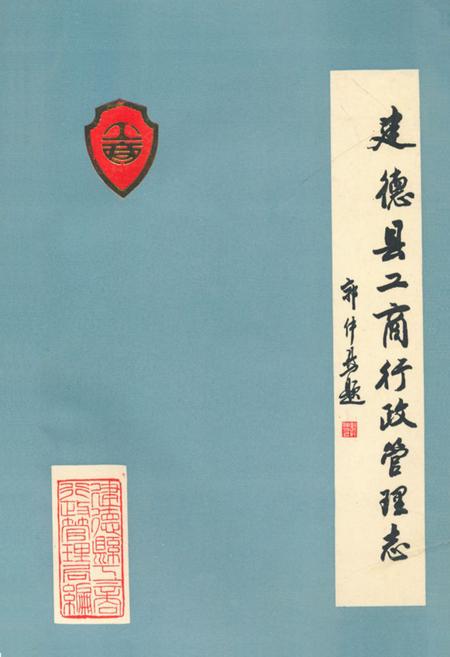 建德县工商行政管理志
郭仲选题
工商
建德縣工商
行政管理局編